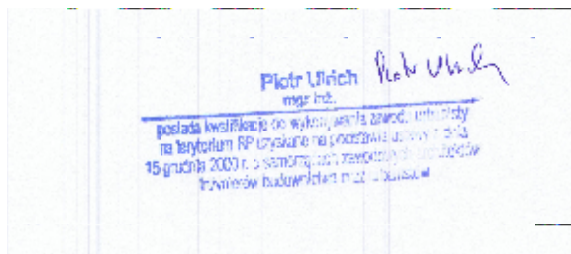 Piotr Ulrich Piotr Ulrich
mgr inż.
posiada kwalifikacje do wykonywania zawodu urbanisty
na terytorium RP uzyskane na podstawie ustawy z dnia
15 grudnia 2000 r. o samorządach zawodowych architektów
inżynierów budownictwa oraz urbanistów